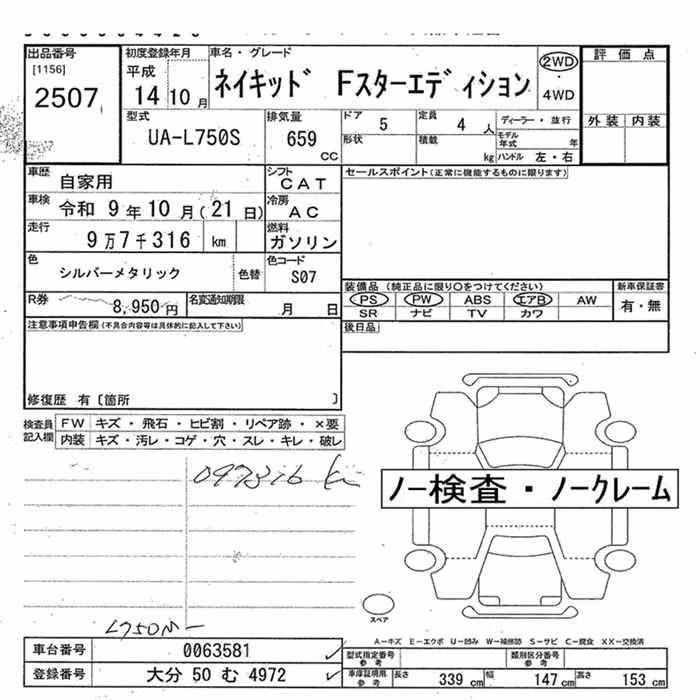 出品番号 初度登録年月 車名・グレード 評価点
[1156] 平成 ネイキッド Fスターエディション 2WD
2507 14 10月 ・
4WD
型式 排気量 ドア 5 定員 4 人 ディーラー・並行 外装 内装
UA-L750S 659 cc 形状 積載 kg モデル年式 年
ハンドル 左・右
車歴 自家用 シフト CAT セールスポイント(正常に機能するものに限ります)
車検 令和 9年10月(21日) 冷房 AC
走行 9万7千316 km 燃料 ガソリン
色 シルバーメタリック 色替 色コード S07
装備品(純正品に限り○をつけてください) 新車保証書
R券 8,950円 名変通知期限 月 日 PS PW ABS エアB AW 有・無
SR ナビ TV カワ
注意事項申告欄(不具合内容等は具体的に記入して下さい) 後日品
修復歴 有〔箇所 〕
検査員記入欄 FW キズ・飛石・ヒビ割・リペア跡・×要
内装 キズ・汚レ・コゲ・穴・スレ・キレ・破レ
097316 km
ノー検査・ノークレーム
スペア
L750M-
A-キズ E-エクボ U-凹み W-補修跡 S-サビ C-腐食 XX-交換済
車台番号 0063581 型式指定番号 参考 類別区分番号 参考
登録番号 大分 50 む 4972 車庫証明用 参考 長さ 339 cm 幅 147 cm 高さ 153 cm